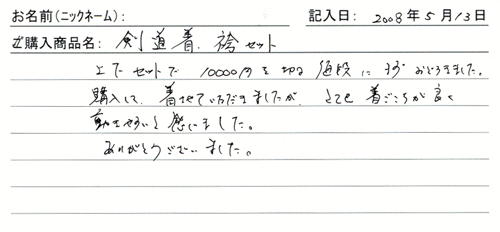 お名前(ニックネーム): 記入日: 2008年5月13日
ご購入商品名: 剣道着、袴セット
上下セットで 10000円を切る値段にまずおどろきました。
購入して、着させていただきましたが、とても着ごこちが良く
動きやすいと感じました。
ありがとうございました。